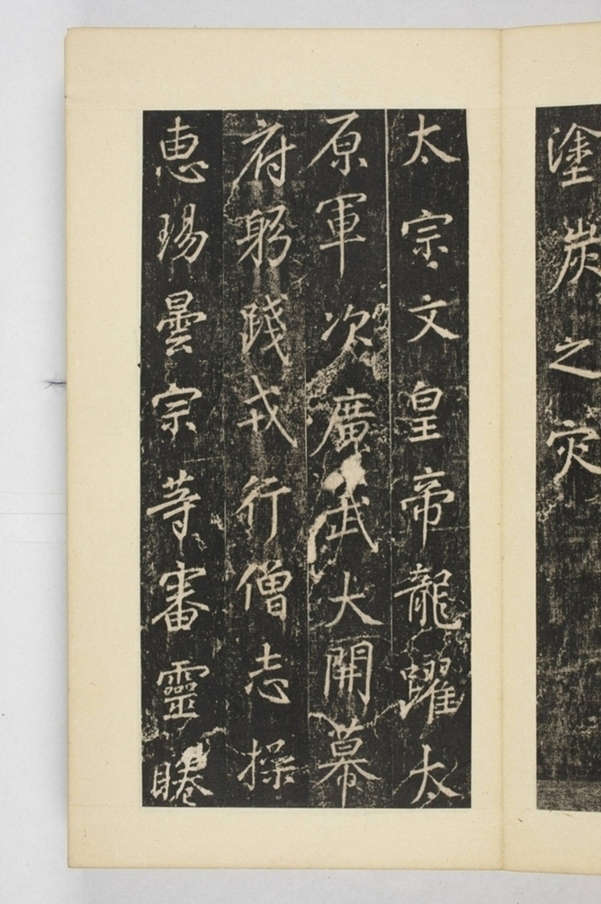 塗炭之灾
太宗文皇帝龍躍太
原軍次廣武大開幕
府躬踐戎行僧志操
惠瑒曇宗等審靈睠